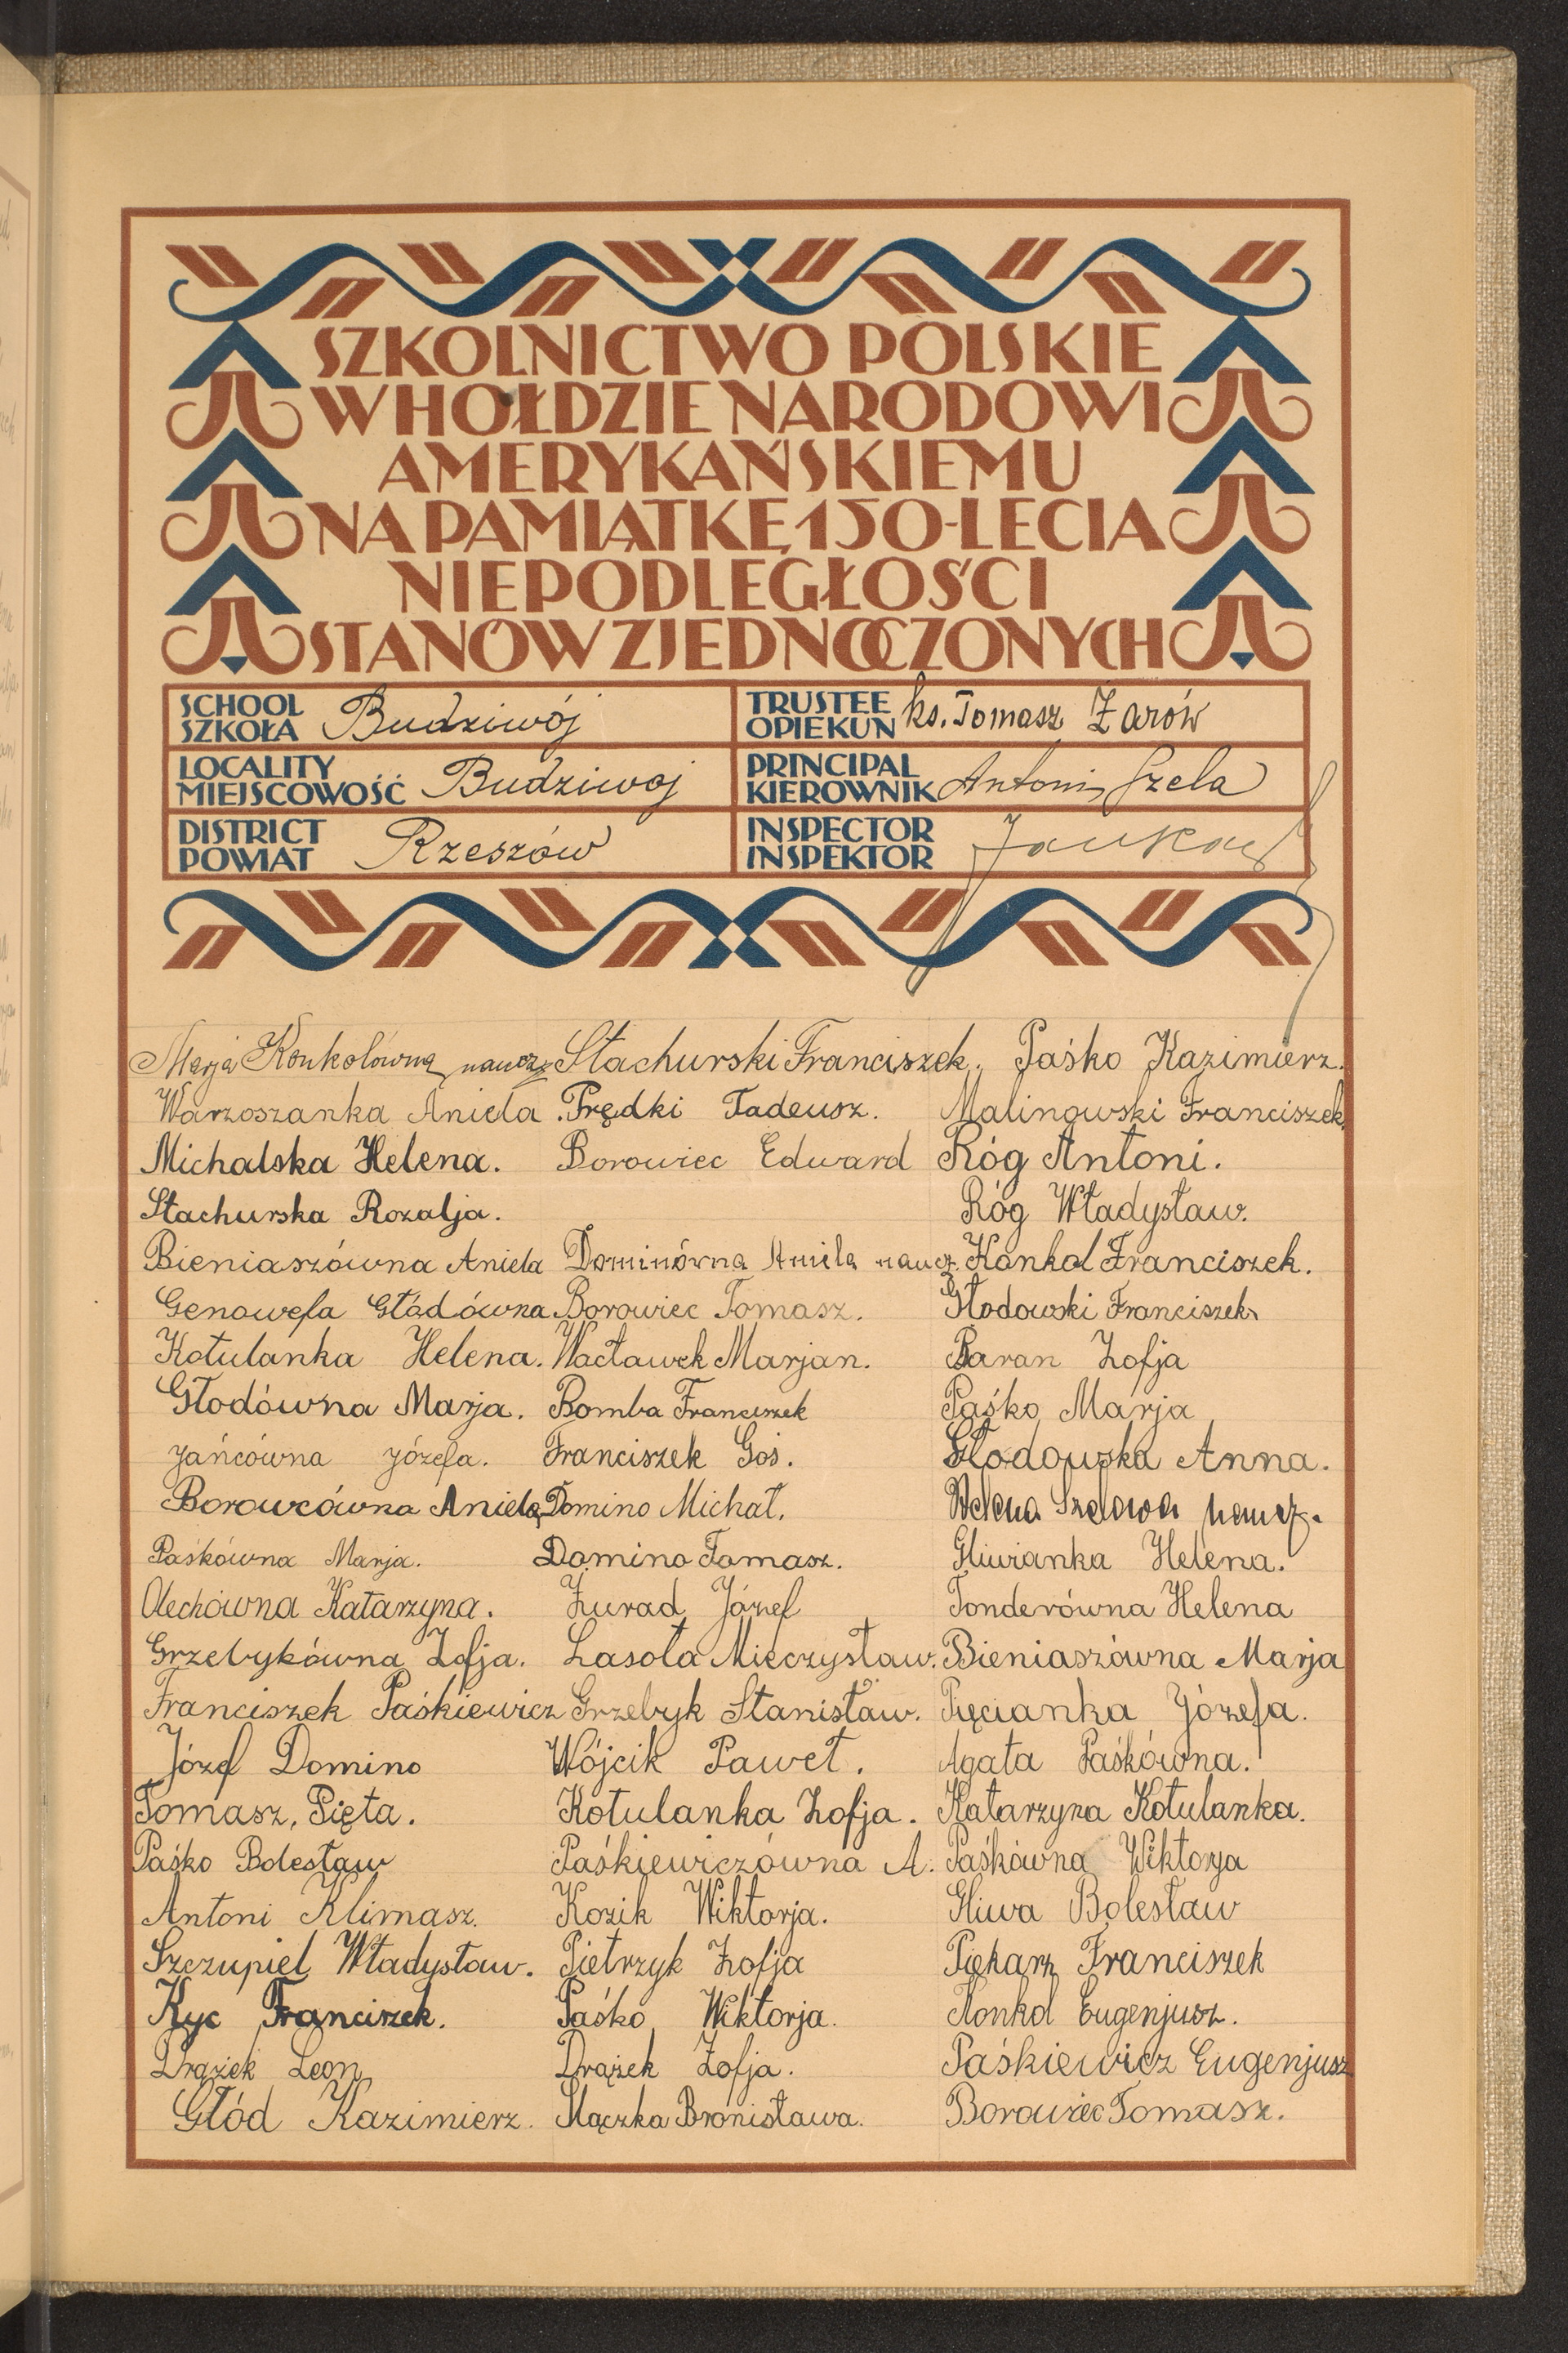 SZKOLNICTWO POLSKIE
W HOŁDZIE NARODOWI
AMERYKAŃSKIEMU
NA PAMIĄTKĘ 150-LECIA
NIEPODLEGŁOŚCI
STANÓW ZJEDNOCZONYCH
SCHOOL
SZKOŁA Budziwój
TRUSTEE
OPIEKUN ks. Tomasz Żarów
LOCALITY
MIEJSCOWOŚĆ Budziwoj
PRINCIPAL
KIEROWNIK Antoni Szela
DISTRICT
POWIAT Rzeszów
INSPECTOR
INSPEKTOR
Marja Konkolówna naucz.
Warzoszanka Aniela
Michalska Helena.
Stachurska Rozalja.
Bieniaszówna Aniela
Genowefa Głódówna
Kotulanka Helena.
Głodówna Marja.
Jańcówna Józefa.
Borowcówna Aniela
Paśkówna Marja.
Olechówna Katarzyna.
Grzebykówna Zofja.
Franciszek Paśkiewicz
Józef Domino
Tomasz, Pięta.
Paśko Bolesław
Antoni Klimasz.
Szczupiel Władysław.
Kyc Franciszek.
Drążek Leon
Głód Kazimierz.
Stachurski Franciszek.
Prędki Tadeusz.
Borowiec Edward
Dominówna Aniela naucz.
Borowiec Tomasz.
Wacławek Marjan.
Bomba Franciszek
Franciszek Goś.
Domino Michał.
Domino Tomasz.
Żurad Józef
Lasota Mieczysław.
Grzebyk Stanisław.
Wójcik Paweł.
Kotulanka Zofja.
Paśkiewiczówna A.
Kozik Wiktorja.
Pietrzyk Zofja
Paśko Wiktorja.
Drążek Zofja.
Mączka Bronisława.
Paśko Kazimierz.
Malinowski Franciszek.
Róg Antoni.
Róg Władysław.
Konkol Franciszek.
Głodowski Franciszek
Baran Zofja
Paśko Marja
Głodowska Anna.
Helena Szelowa naucz.
Gliwianka Helena.
Tonderówna Helena
Bieniaszówna Marja
Pięcianka Józefa.
Agata Paśkówna.
Katarzyna Kotulanka.
Paśkówna Wiktorja
Gliwa Bolesław
Piękarz Franciszek
Konkol Eugenjusz.
Paśkiewicz Eugenjusz
Borowiec Tomasz.